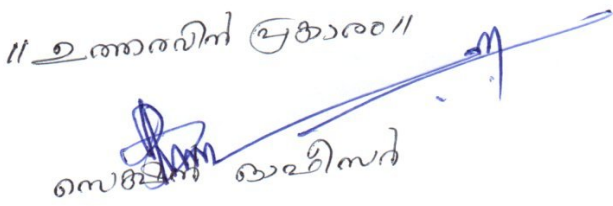 // ഉത്തരവിൻ പ്രകാരം //
സെക്ഷൻ ഓഫീസർ